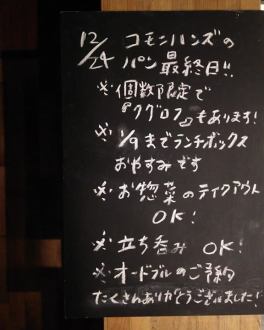 12/24 コモンハンズの
パン最終日!!
※個数限定で
『クグロフ』もあります!
※1/9までランチボックス
おやすみです
※お惣菜のテイクアウト
OK!
※立ち呑み OK!
※オードブルのご予約
たくさんありがとうございました!